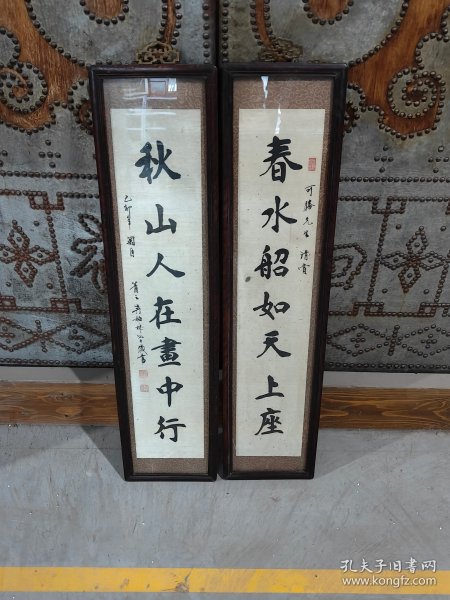 春水船如天上座
可勝先生 清賞
秋山人在畫中行
乙卯年
孔夫子旧书网
www.kongfz.com